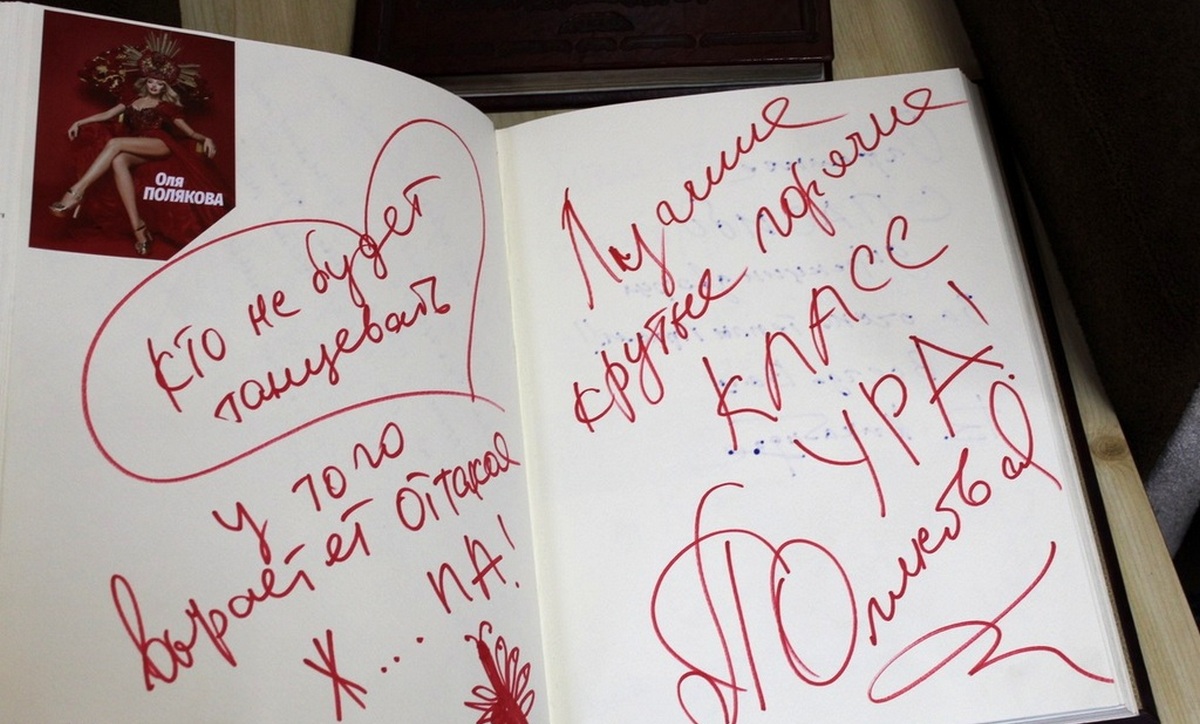 Оля
ПОЛЯКОВА
КТО не будет
танцевать
у того
вырастет оттакая
Ж... ПА!
Лучшие
крутые горячие
КЛАСС
УРА!
Полякова